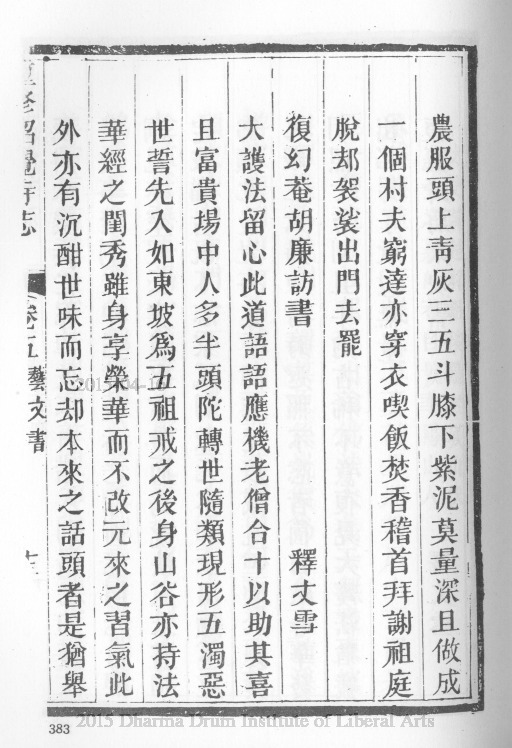 農服頭上靑灰三五斗膝下紫泥莫量深且做成
一個村夫窮達亦穿衣喫飯焚香稽首拜謝祖庭
脫却袈裟出門去罷
復幻菴胡廉訪書　釋丈雪
大護法留心此道語語應機老僧合十以助其喜
且富貴場中人多半頭陀轉世隨類現形五濁惡
世誓先入如東坡爲五祖戒之後身山谷亦持法
華經之閨秀雖身享榮華而不改元來之習氣此
外亦有沉酣世味而忘却本來之話頭者是猶舉
昭覺寺志
卷五藝文書
383
2015 Dharma Drum Institute of Liberal Arts